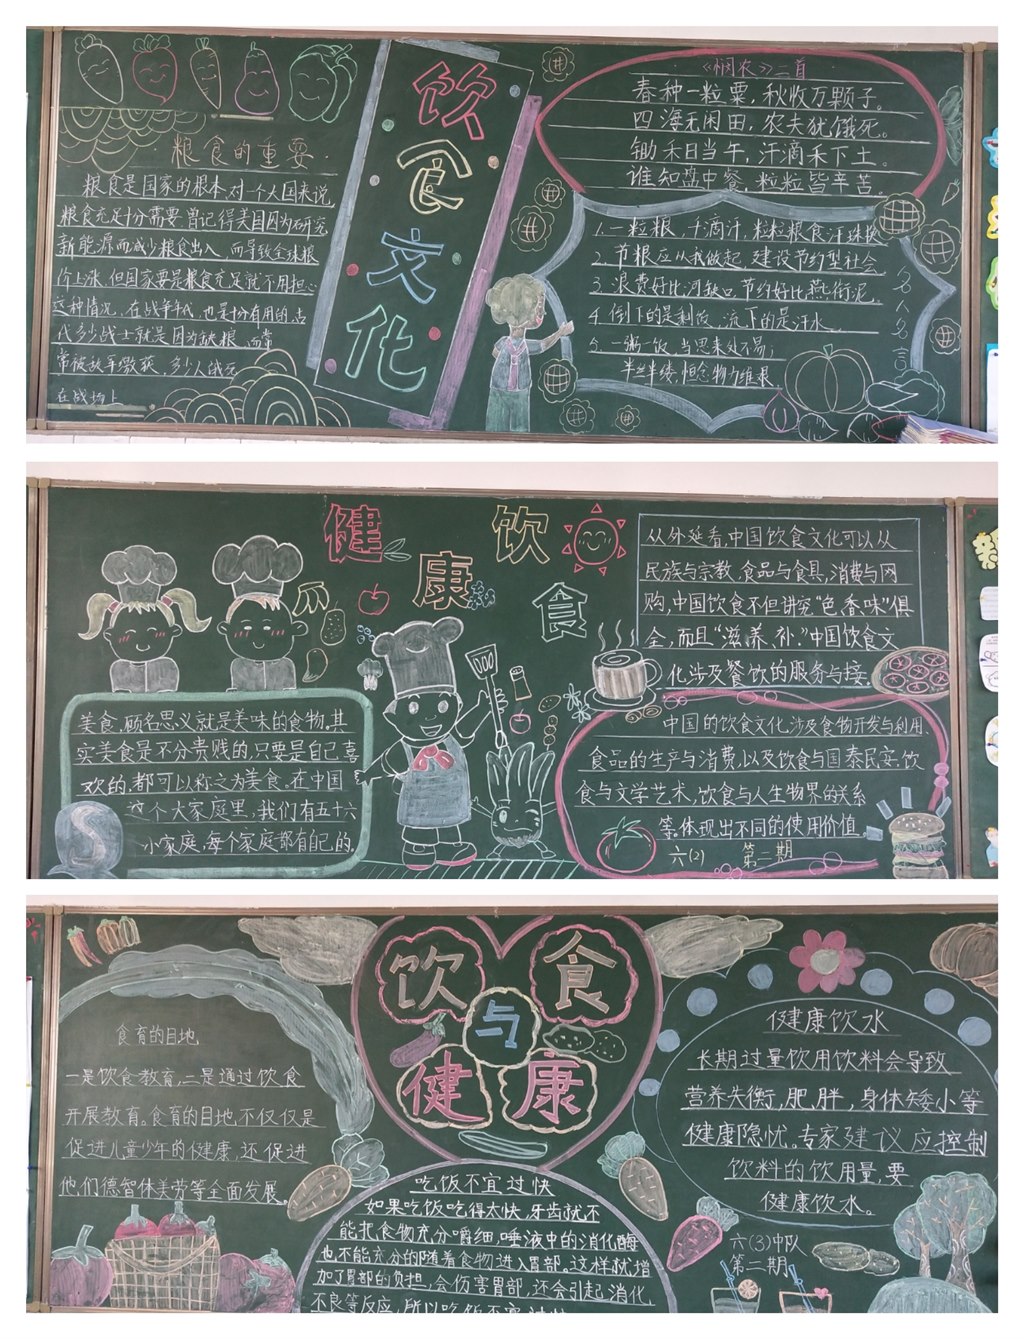 饮食文化
粮食的重要.
粮食是国家的根本,对一个大国来说
粮食充足十分需要,曾记得美国因为研究
新能源而减少粮食出入,而导致全球粮
价上涨,但国家要是粮食充足就不用担心
这种情况,在战争年代,也是十分有用的,古
代多少战士就是因为缺粮,而常
常被敌军缴获,多少人饿死
在战场上
《悯农》二首
春种一粒粟,秋收万颗子。
四海无闲田,农夫犹饿死。
锄禾日当午,汗滴禾下土。
谁知盘中餐,粒粒皆辛苦。
名人名言
1.一粒粮,千滴汗,粒粒粮食汗珠换
2.节粮应从我做起,建设节约型社会
3.浪费好比河缺口,节约好比燕衔泥。
4.倒下的是剩饭,流下的是汗水
5.一粥一饭,当思来处不易;
半丝半缕,恒念物力维艰
健康饮食
美食,顾名思义就是美味的食物,其
实美食是不分贵贱的,只要是自己喜
欢的,都可以称之为美食。在中国
这个大家庭里,我们有五十六
小家庭,每个家庭都有自己的。
从外延看,中国饮食文化可以从
民族与宗教,食品与食具,消费与网
购,中国饮食不但讲究“色香味”俱
全,而且“滋养补”中国饮食文
化涉及餐饮的服务与接
中国的饮食文化,涉及食物开发与利用、
食品的生产与消费,以及饮食与国泰民安,饮
食与文学艺术,饮食与人生物界的关系
等。体现出不同的使用价值
六(2) 第二期
饮食与健康
食育的目地
一是饮食教育,二是通过饮食
开展教育。食育的目地不仅仅是
促进儿童少年的健康,还促进
他们德智体美劳等全面发展。
吃饭不宜过快
如果吃饭吃得太快,牙齿就不
能把食物充分嚼细,唾液中的消化酶
也不能充分的随着食物进入胃部。这样就增
加了胃部的负担,会伤害胃部,还会引起消化
不良等反应,所以吃饭不宜过快
健康饮水
长期过量饮用饮料会导致
营养失衡,肥胖,身体矮小等
健康隐忧。专家建议应控制
饮料的饮用量,要
健康饮水。
六(3)中队
第二期